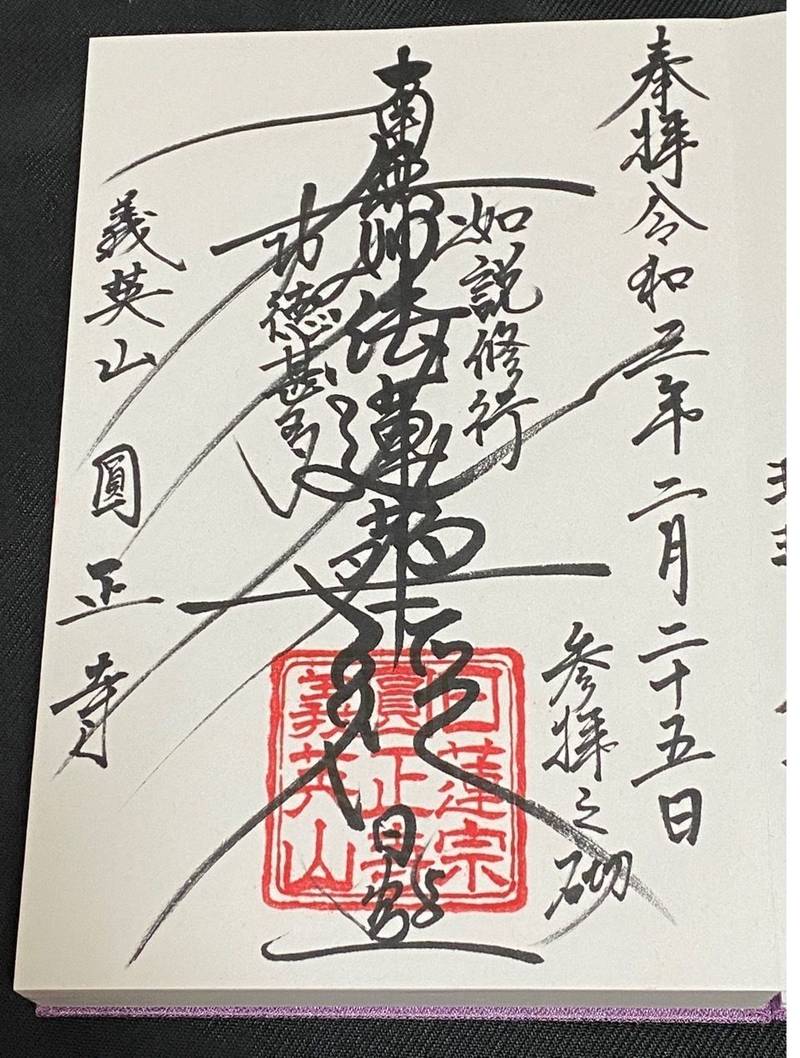 奉拝 令和五年二月二十五日
参拝之砌
如説修行
南無妙法蓮華経
功徳甚多
日
義英山 圓正寺
日蓮宗
圓正寺
義英山